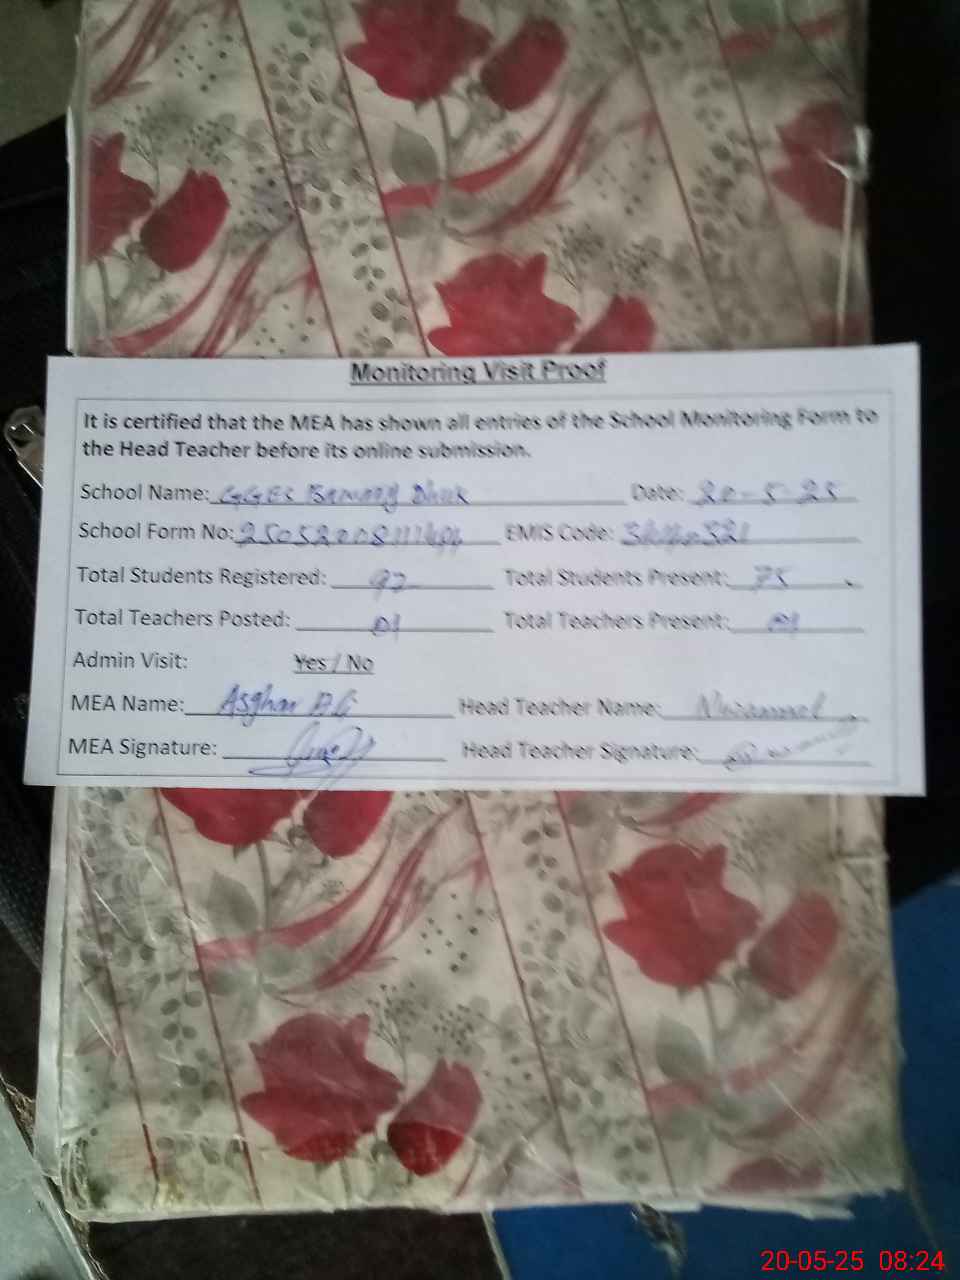 Monitoring Visit Proof
It is certified that the MEA has shown all entries of the School Monitoring Form to
the Head Teacher before its online submission.
School Name: GGES Dhok Date: 20-5-25
School Form No: EMIS Code:
Total Students Registered: 92 Total Students Present: 75
Total Teachers Posted: 01 Total Teachers Present: 01
Admin Visit: Yes / No
MEA Name: Asghar Ali Head Teacher Name:
MEA Signature: Head Teacher Signature:
20-05-25 08:24